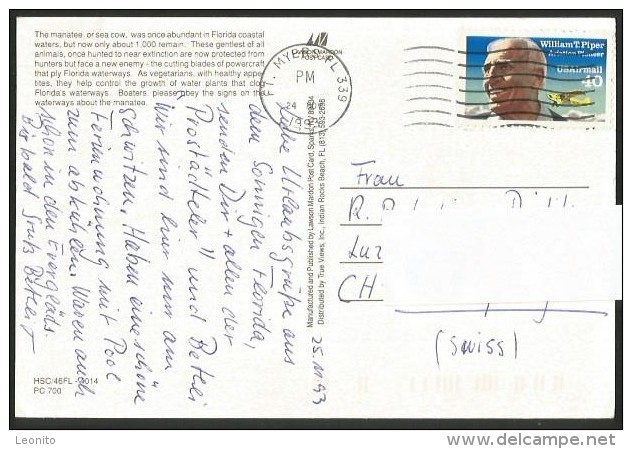 The manatee, or sea cow, was once abundant in Florida coastal
waters, but now only about 1,000 remain. These gentlest of all
animals, once hunted to near extinction are now protected from
hunters but face a new enemy - the cutting blades of powercraft
that ply Florida waterways. As vegetarians, with healthy appe-
tites, they help control the growth of water plants that clog
Florida's waterways. Boaters, please obey the signs on the
waterways about the manatee.
LAWSON MARDON
POST CARD
FT. MYERS, FL 339
PM
24
1993
William T. Piper
Aviation Pioneer
USAirmail
40
25.11.93
Liebe Urlaubsgrüße aus
dem Sonnigen Florida,
senden Dir + allen der
und
Wir sind hier nur am
schwitzen. Haben eine schöne
Ferienwohnung mit Pool
zum abkühlen. Waren auch
schon in den Everglads.
Bis bald Gruß
Manufactured and Published by Lawson Mardon Post Card,
Distributed by True Views, Inc., Indian Rocks Beach, FL (813) 593-2696
Frau
R.
Luz
CH
(Swiss)
HSC/46FL - 2014
PC 700
Leonito
www.delcampe.net